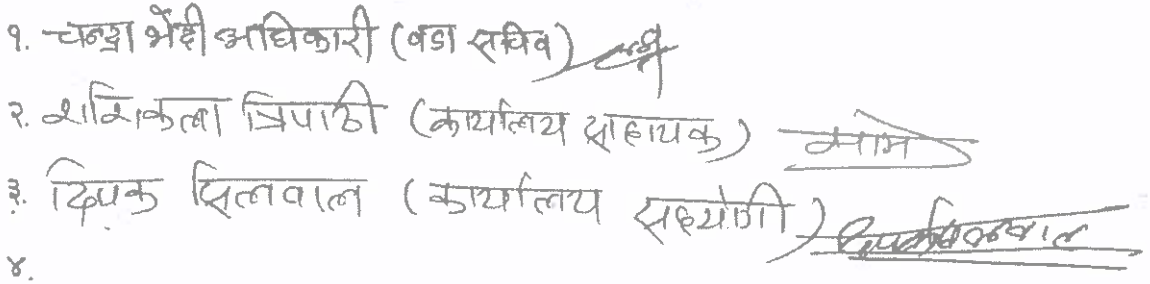 १. चन्द्रा भेंडी अधिकारी (वडा सचिव)
२. शशिकला त्रिपाठी (कार्यालय सहायक)
३. दिपक सिलवाल (कार्यालय सहयोगी)
४.